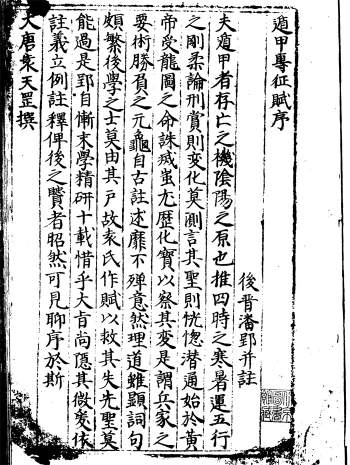 遁甲專征賦序
後晉潘郢并註
夫遁甲者存亡之機陰陽之原也推四時之寒暑運五行
之剛柔論刑賞則變化莫測言其聖則恍惚潛通始於黃
帝受龍圖之命誅蚩尤歷化寶以察其變是謂兵家之
要術勝負之元龜自古註述靡不殫意然理道雖顯詞句
頗繁後學之士莫由其戶故袁氏作賦以救其失先聖莫
能過是郢自慚末學精研十載惜乎大旨尚隱其微爰依
註義立例註釋俾後之覽者昭然可見聊序於斯
大唐袁天罡撰